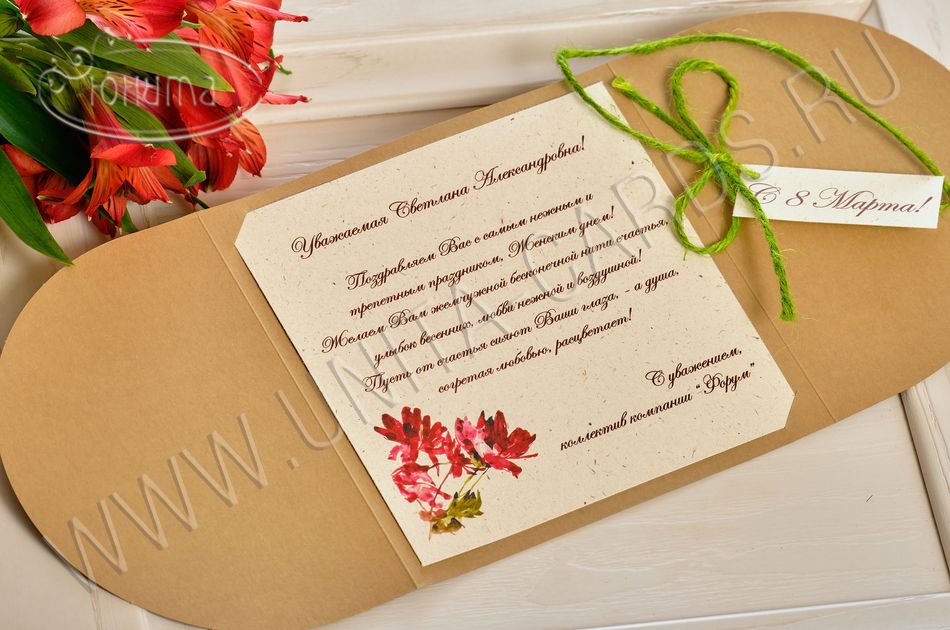 Юнита
Уважаемая Светлана Александровна!
Поздравляем Вас с самым нежным и
трепетным праздником, Женским днем!
Желаем Вам жемчужной бесконечной нити счастья,
улыбок весенних, любви нежной и воздушной!
Пусть от счастья сияют Ваши глаза, - а душа,
согретая любовью, расцветает!
С уважением,
коллектив компании "Форум"
С 8 Марта!
WWW.UNITA-CARDS.RU